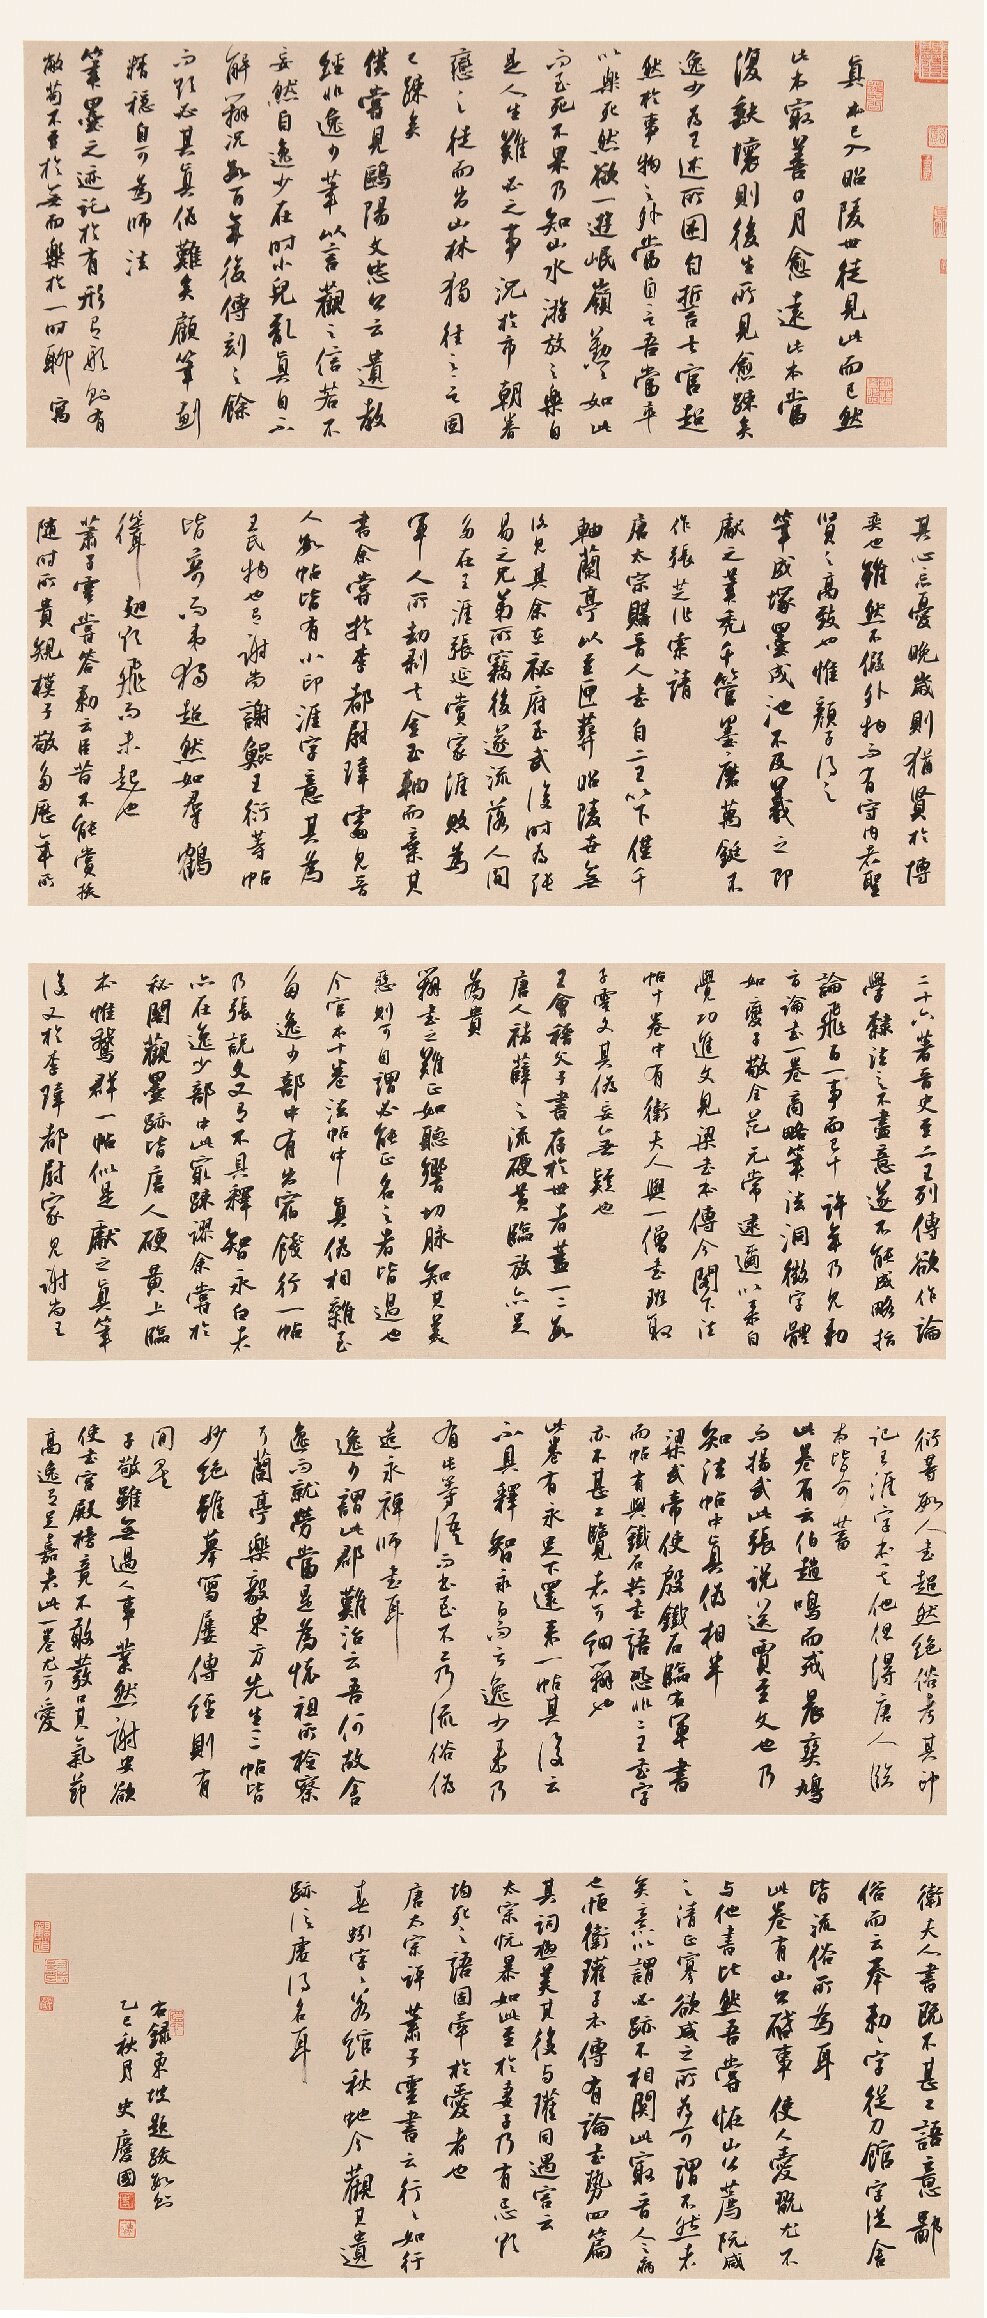 真本已入昭陵世徒见此而已然
此本最善日月愈远此本当
復缺壞則後生所見愈疎矣
逸少為王述所困自誓去官超
然於事物之外嘗自言吾當卒
以樂死然欲一遊岷嶺勤勤如此
而至死不果乃知山水游放之樂自
是人生難必之事況於市朝眷
戀之徒而出山林獨往之言固
已疎矣
僕嘗見歐陽文忠公云遺教
經非逸少筆以言觀之信若不
妄然自逸少在時小兒亂真自不
解辨況數百年後傳刻之餘
而欲必其真偽難矣顧筆劃
精穩自可為師法
筆墨之迹託於有形有形則有
弊苟不至於無而樂於一時聊寓
其心忘憂晚歲則猶賢於博
奕也雖然不假外物而有守內者聖
賢之高致也惟顏子得之
筆成塚墨成池不及羲之即
獻之筆禿千管墨磨萬鋌不
作張芝作索靖
唐太宗購晉人書自二王以下僅千
軸蘭亭以玉匣葬昭陵世無
復見其余在秘府至武后時為張
易之兄弟所竊後遂流落人間
多在王涯張延賞家涯敗為
軍人所劫剥去金玉軸而棄其
書余嘗於李都尉瑋處見晉
人數帖皆有小印涯字意其為
王氏物也有謝尚謝鯤王衍等帖
皆奇而弟獨超然如羣鶴
聳翅欲飛而未起也
蕭子雲嘗答勅云臣昔不能賞拔
隨時所貴規模子敬多歷年所
二十六著晉史至二王列傳欲作論
學隸法言不盡意遂不能成略指
論飛白一事而已十許年乃見勅
旨論書一卷商略筆法洞徹字體
始變子敬全范元常逮邇以來自
覺功進文見梁書本傳今閣下法
帖十卷中有衛夫人與一僧書班取
子雲文其偽妄無疑也
王會稽父子書存於世者蓋一二數
唐人褚薛之流硬黃臨放亦足
為貴
辨書之難正如聽響切脉知其美
惡則可自謂必能正名之者皆過也
今官本十卷法帖中真偽相雜至
多逸少部中有出宿餞行一帖
乃張說文又有不具釋智永白者
亦在逸少部中此最疎謬余嘗於
秘閣觀墨跡皆唐人硬黃上臨
本惟鵞群一帖似是獻之真筆
後又於李瑋都尉家見謝尚王
衍等數人書超然絕俗考其印
記王涯字本其他但得唐人臨
本皆可蓄
此卷有云伯趙鳴而戒晨爽鳩
而揚武此張說送賈至文也乃
知法帖中真偽相半
梁武帝使殷鐵石臨右軍書
而帖有與鐵石共書語恐非二王書字
亦不甚工覽者可細辨也
此卷有永足下還來一帖其後云
不具釋智永白而云逸少來乃
有此等語而書至不工乃流俗偽
造永禪師書耳
逸少謂此郡難治云吾何故舍
逸而就勞當是為懷祖所檢察
耳蘭亭樂毅東方先生三帖皆
妙絕雖摹寫屢傳猶有
子敬雖無過人事業然謝安欲
使書宮殿榜竟不敢發口其氣節
高逸有足嘉者此一卷尤可愛
衛夫人書既不甚工語意鄙
俗而云奉勅勅字從力館字從舍
皆流俗所為耳
此卷有山公啟事使人愛翫尤不
与他書比然吾嘗怪山公薦阮咸
之清正寡欲咸之所為可謂不然者
矣意以謂心跡不相關此最晉人之病
也恒衛瓘子本傳有論書勢四篇
其詞極美其後与瓘同遇害云
太宗忼暴如此至於妻子乃有忌欲
均死之語固牽於愛者也
唐太宗評蕭子雲書云行行如行
春蚓字字若綰秋蛇今觀其遺
跡信虛得名耳
右錄東坡題跋數則
乙巳秋月 史慶國